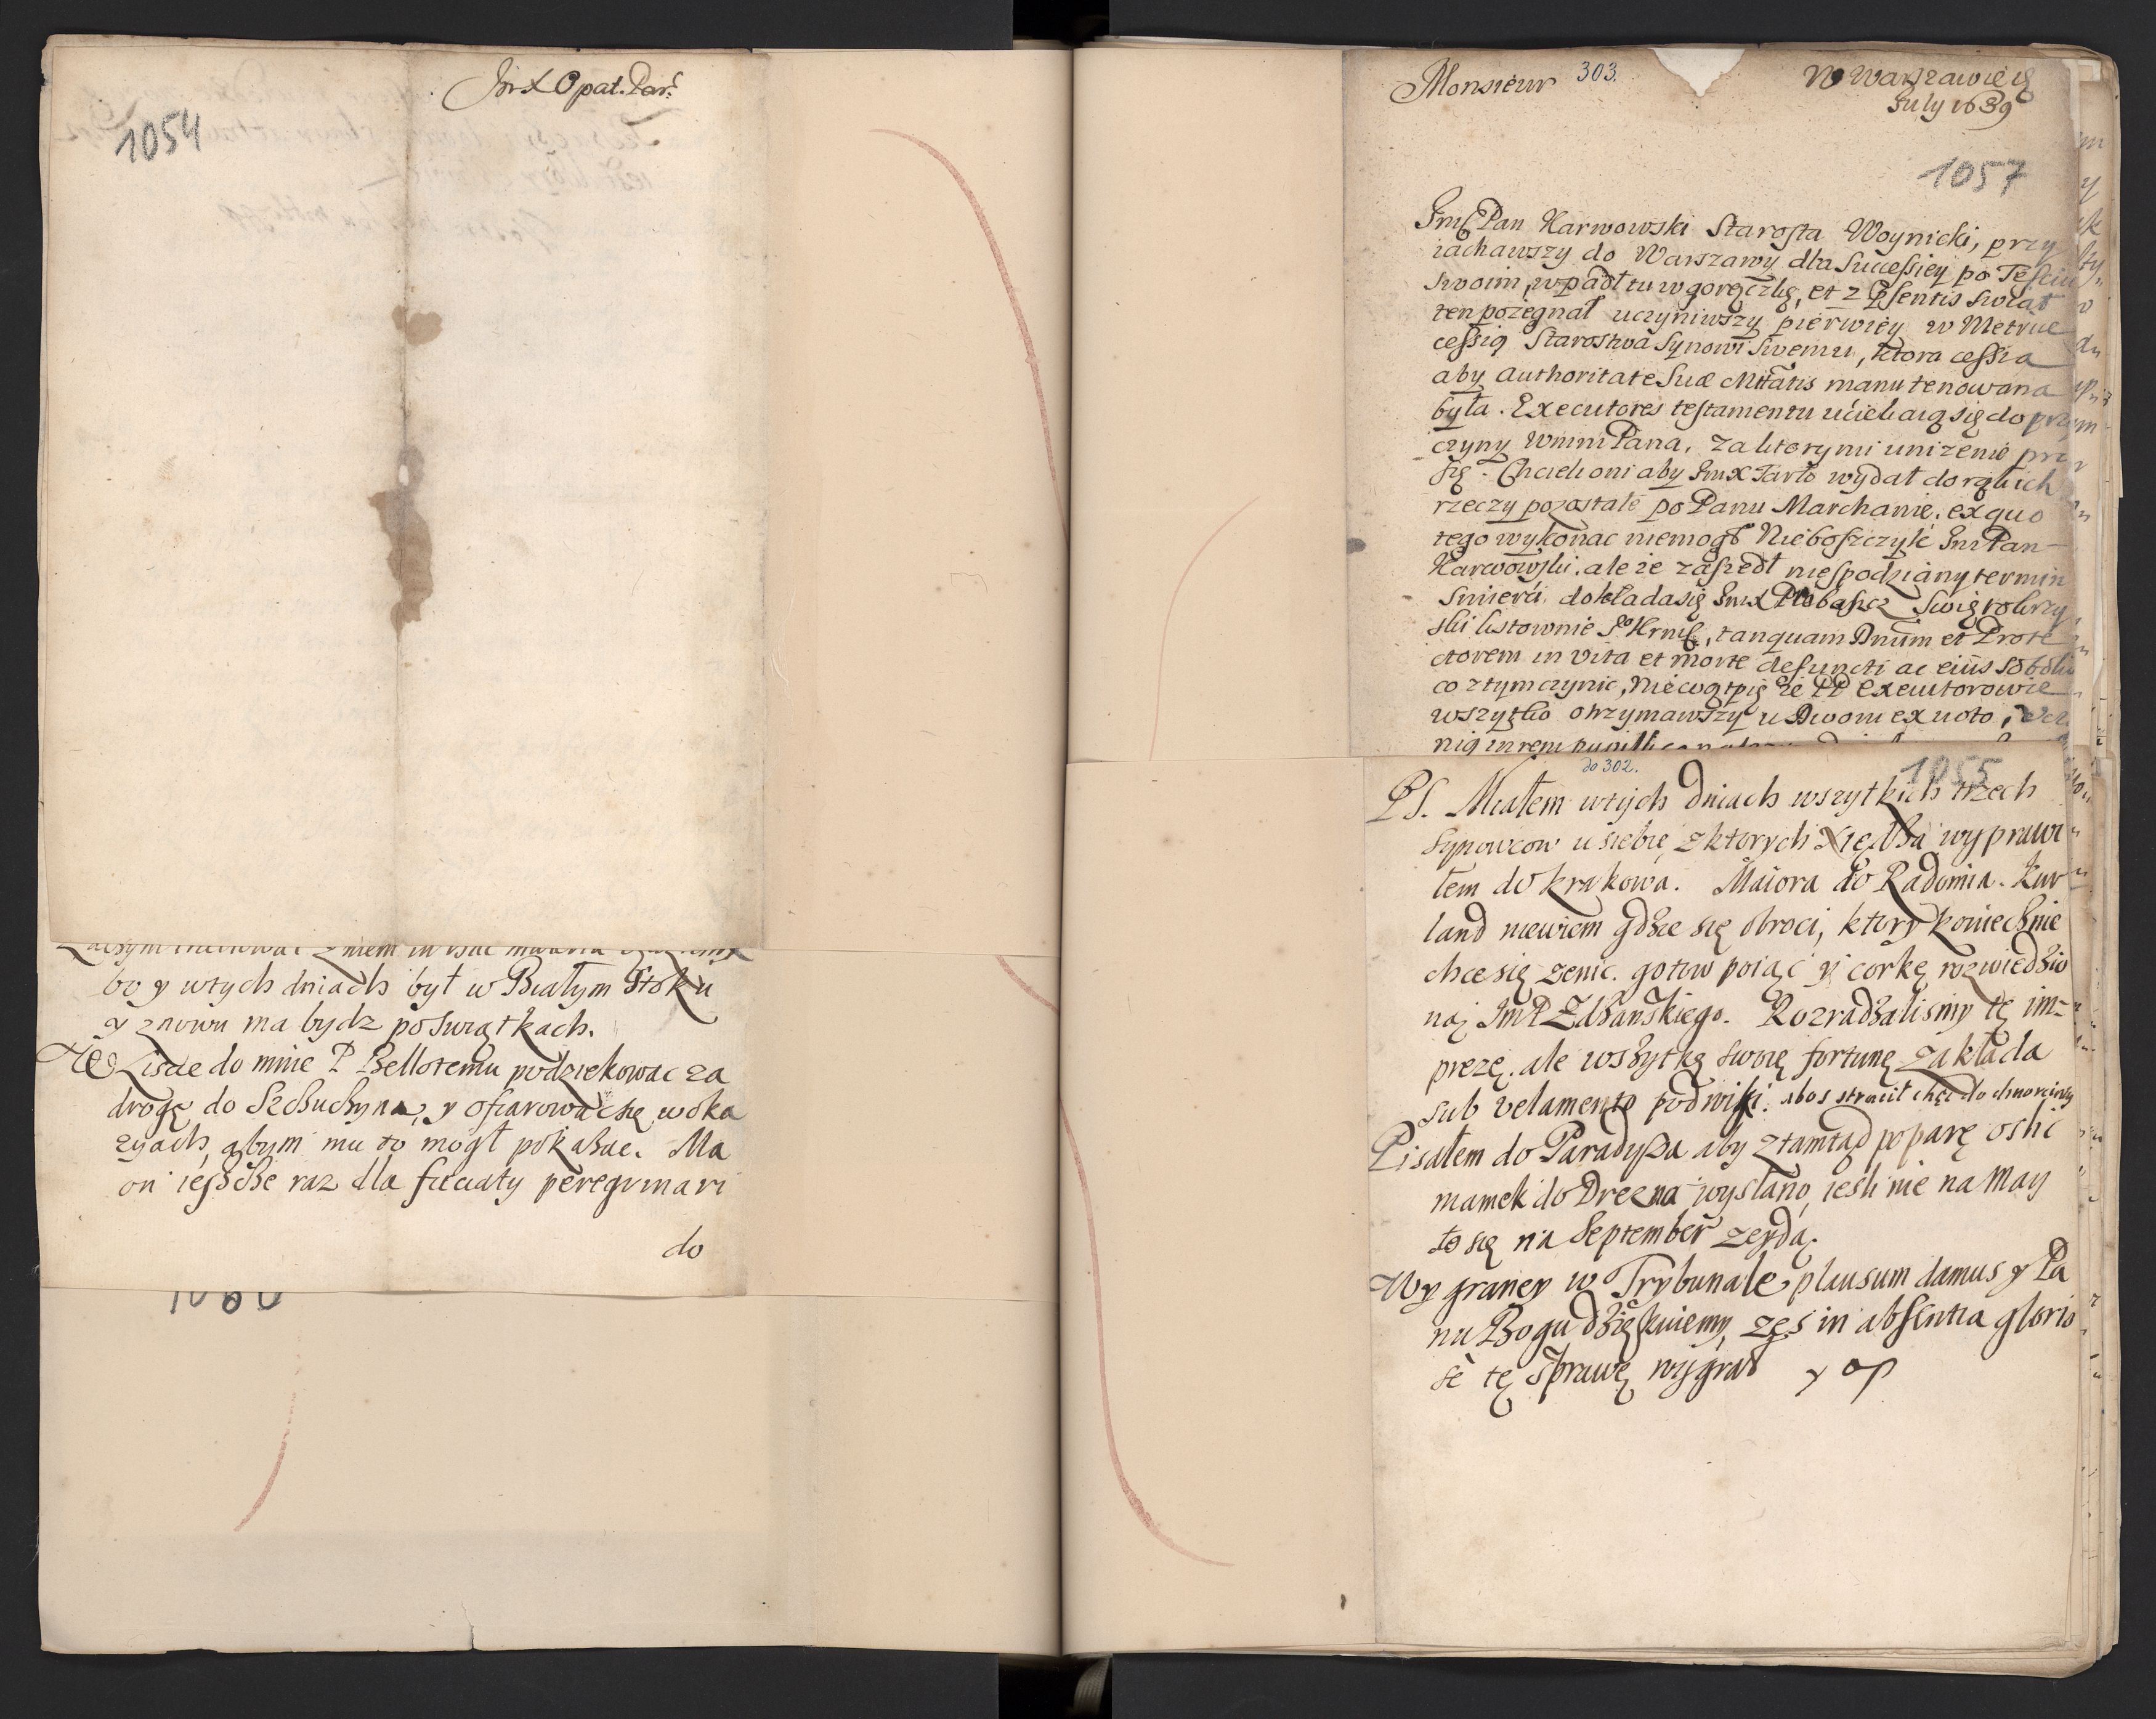 JmX Opat. Par.
1054
bo y w tych dniach był w Białym Stoku
y znowu ma bydz po swiątkach.
Każ Lisde do mnie P Bellotemu podziekowac za
drogę do Szchuchyna, y ofiarowac się w oka
zyach, abym mu to mogł pokazac. Ma
on ieszche raz dla faciaty peregrinari
do
1060
Monsieur 303.
W Warszawie
July 1689
1057
JmC Pan Karwowski Starosta Woynicki, przy
iachawszy do Warszawy dla Successiey po Tesciu
swoim, wpadł tu w gorączkę, et z Psentis swiat
ten pozegnał uczyniwszy pierwiey w Metrice
cessią Starostwa Synowi Swemu, ktora cessia
aby authoritate Suæ Mttatis manutenowana
była. Executores testamentu uciekaią się do przy
czyny WmmPana, za ktorymi unizenie pro
szę. Chcieli oni aby JmX Tarło wydał do rąk ich
rzeczy pozostałe po Panu Marchanie, ex quo
tego wykonac niemogł Nieboszczyk Jm Pan
Karwowski. ale ze zaszedł niespodziany termin
smierci, dokłada się JmX Probascz Swiętokrzy
ski listownie, tanquam Dnum et Prote
ctorem in vita et morte defuncti ac eius
co z tym czynic, Niewątpię ze PP Executorowie
wszytko otrzymawszy u Dworu ex uoto,
nią in rem
do 302.
1055
PS. Miałem w tych dniach wszytkich trzech
Synowcow u siebie, z ktorych Xiędza wyprawi
łem do Krakowa. Maiora do Radomia. Kur
land niewiem gdzie się obroci, ktory koniecznie
chce się zenic. gotow poiąc y corkę rozwiedzio
ną JmP Zdzanskiego. Rozradzalismy tę im=
prezę. ale wszytkę swoię fortunę zakłada
sub velamento podwiki. abos stracił chęc do
Pisałem do Paradyza aby ztamtąd poparę osli
mamek do Drezna wysłano, iesli nie na May
to się na September zeydą.
Wygraney w Trybunale plausum damus y Pa
nu Bogu dziękuiemy, zes in absentia glorio
se tę sprawę wygrał y op